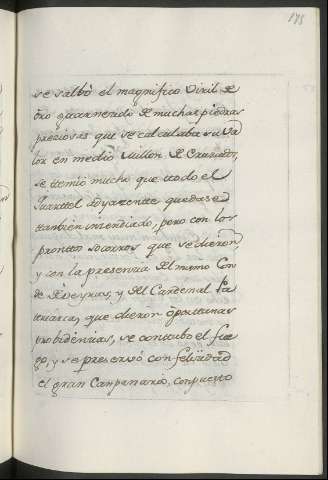 175
se salbó el magnifico Viril de
oro guarnecido de muchas piedras
preciosas que se calculaba su va
lor en medio Millon de Cruzados,
se temió mucho que todo el
Quarttel adyazente quedase
tambien incendiado, pero con los
promttos socorros que se dieron,
y con la presencia del mismo Con
de de Oeyras, y del Cardenal Pa
triarca, que dieron oporttunas
probidencias, se conttubo el fue
go, y se preservó con felicidad
el gran Campanario, compuesto